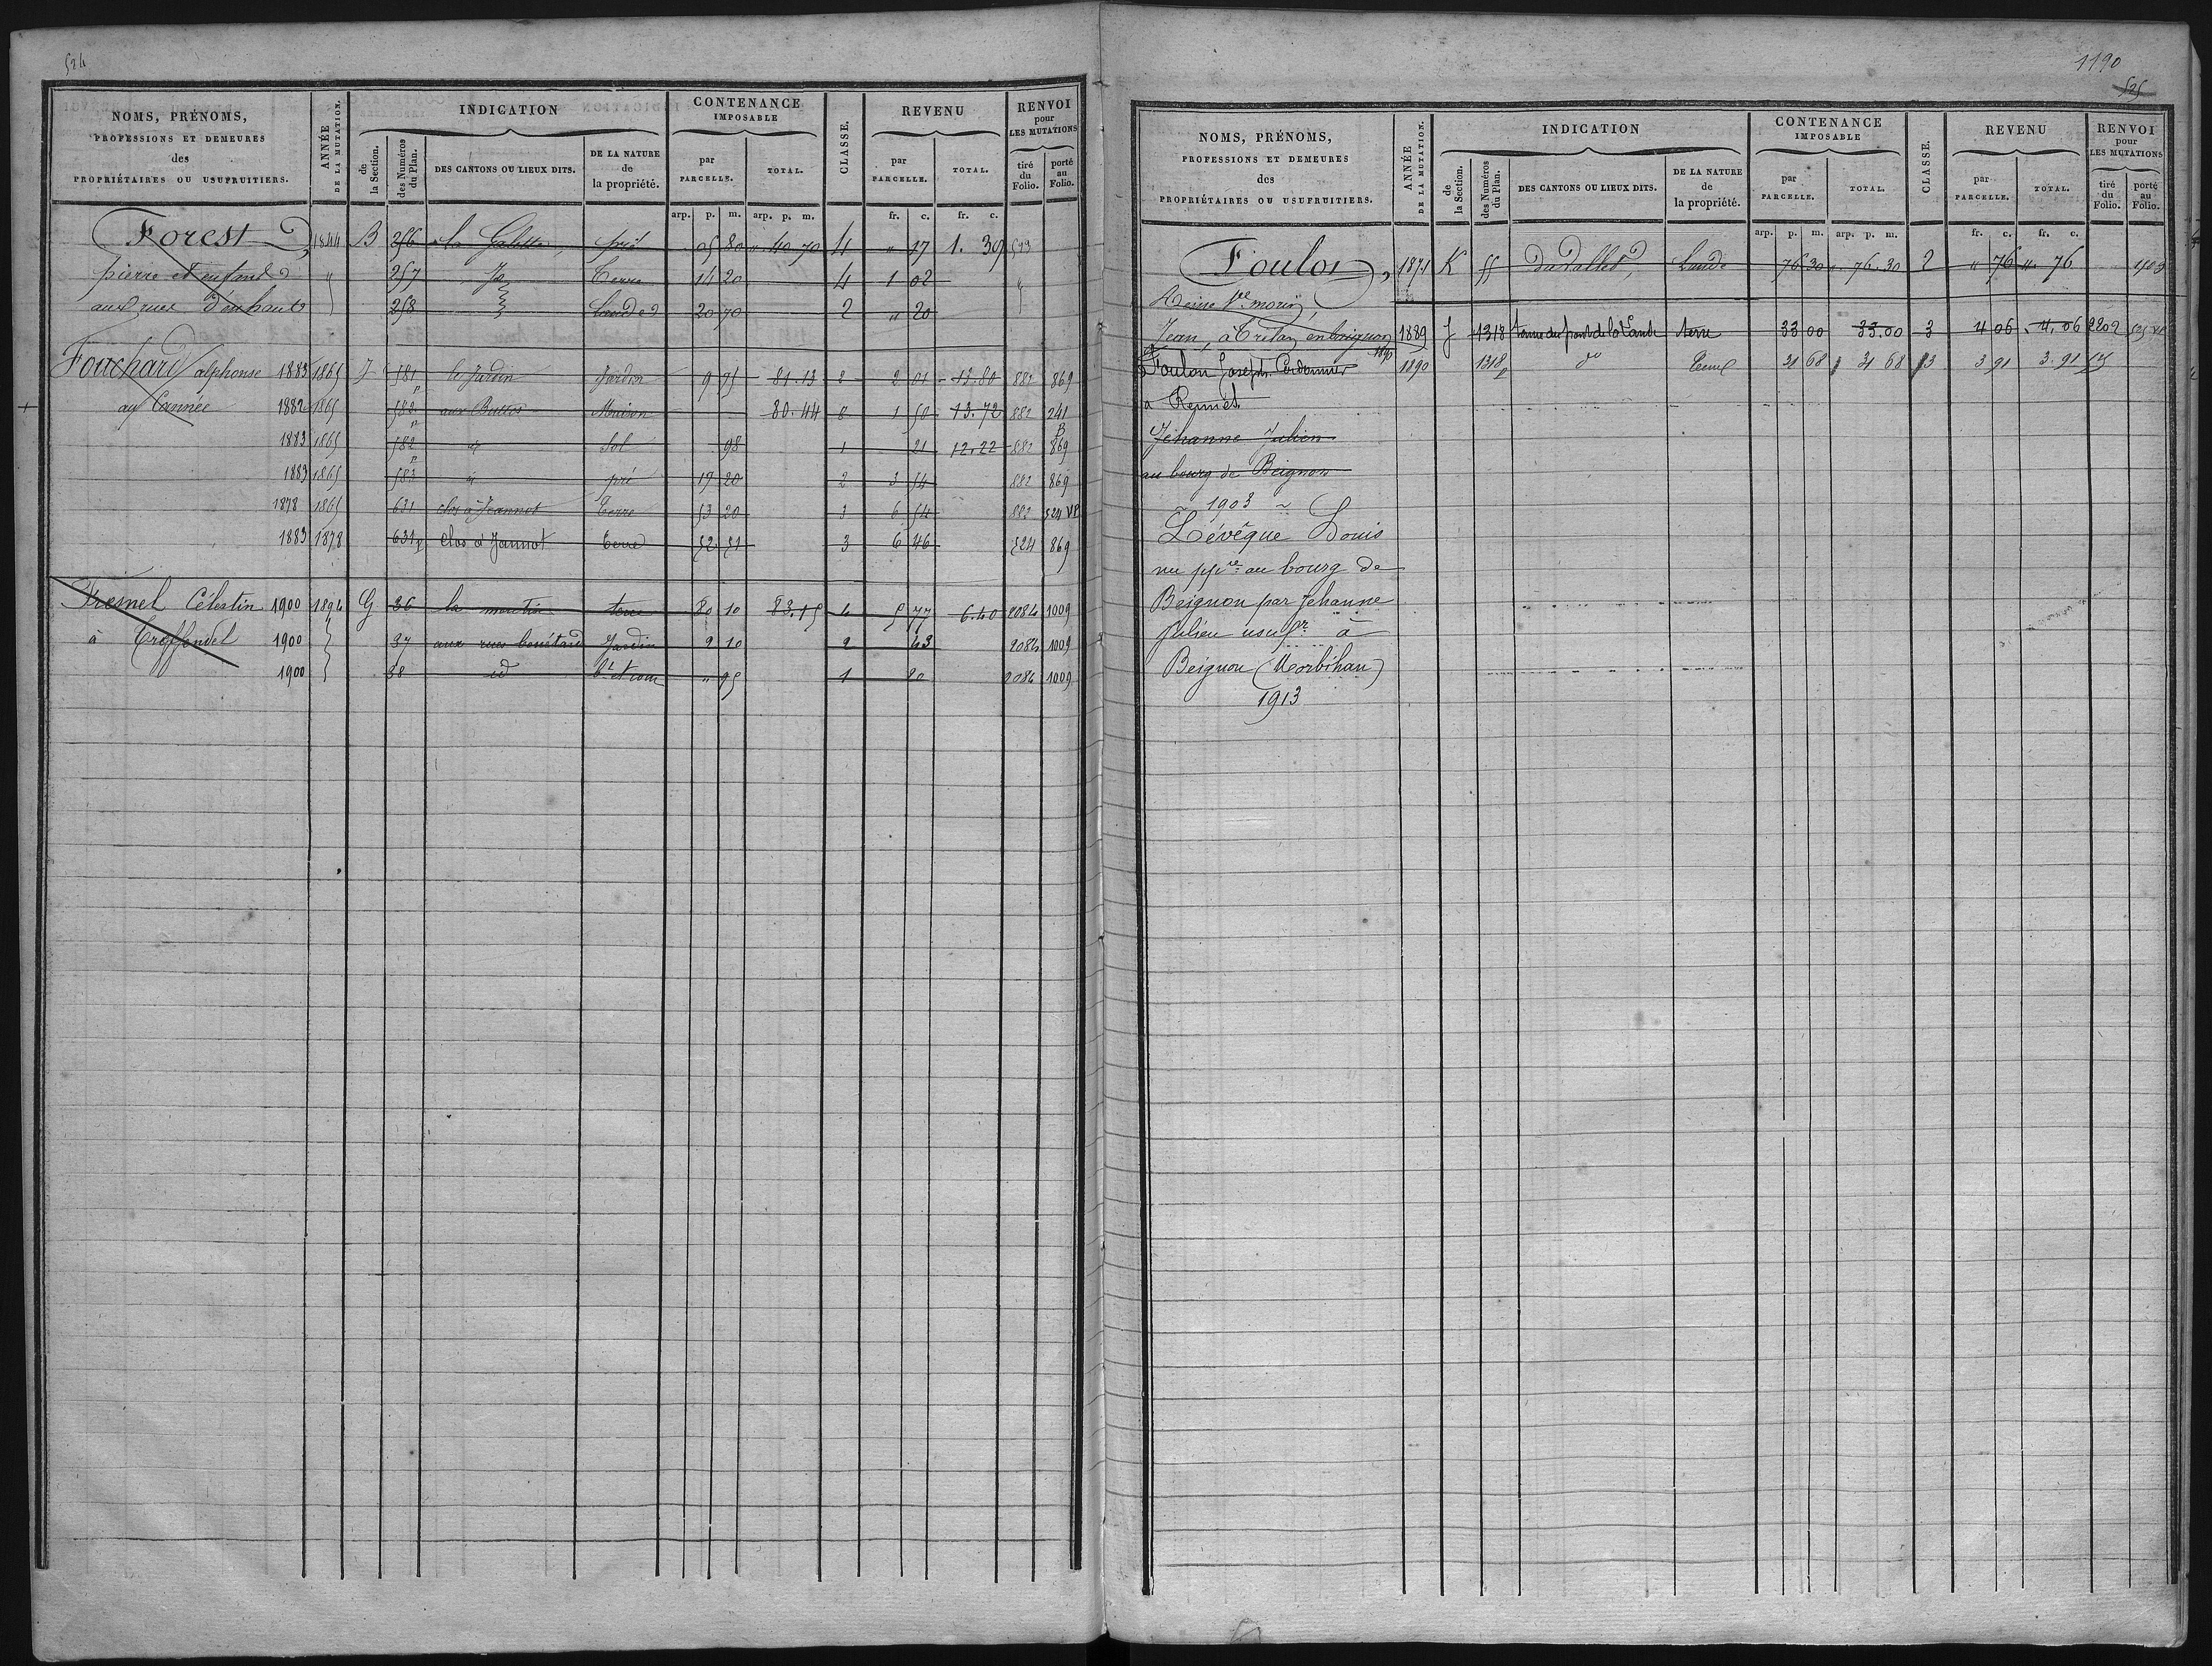 524
NOMS, PRÉNOMS,
PROFESSIONS ET DEMEURES
des
PROPRIÉTAIRES OU USUFRUITIERS.
ANNÉE
DE LA MUTATION.
INDICATION
de
la Section.
des Numéros
du Plan.
DES CANTONS OU LIEUX DITS.
DE LA NATURE
de
la propriété.
CONTENANCE
IMPOSABLE
par
PARCELLE.
TOTAL.
CLASSE.
REVENU
par
PARCELLE.
TOTAL.
RENVOI
pour
LES MUTATIONS
tiré
du
Folio.
porté
au
Folio.
arp. p. m. arp. p. m. fr. c. fr. c.
Forest 1844 B 256 la Galette pré 05 80 " 40 70 4 " 17 1. 39 593
pierre et enfants " 257 Terre 14 20 4 1 02
aux rues d'en haut 258 landes 20 70 2 " 20
Fouchard alphonse 1883 1865 J 581 p le Jardin Jardin 9 75 81.13 2 2 01 13.80 882 869
au Cannée 1882 1865 582 p aux Buttes Maison 80.44 8 1 50 13.72 882 241
1883 1865 582 p id Sol 98 1 21 12.22 882 B 869
1883 1865 583 id pré 17 20 2 3 54 882 869
1878 1865 631 clos à Jeannot Terre 53 20 3 6 54 882 524 VP
1883 1878 631 p Clos à Jannot Terre 52 51 3 6 46 524 869
Fresnel Célestin 1900 1894 G 36 la terre 80 10 83.15 4 5 77 6.40 2084 1009
à Treffendel 1900 37 aux rues Jardin 2 10 2 43 2084 1009
1900 38 id bt et cour " 95 1 20 2084 1009
1190
525
NOMS, PRÉNOMS,
PROFESSIONS ET DEMEURES
des
PROPRIÉTAIRES OU USUFRUITIERS.
ANNÉE
DE LA MUTATION.
INDICATION
de
la Section.
des Numéros
du Plan.
DES CANTONS OU LIEUX DITS.
DE LA NATURE
de
la propriété.
CONTENANCE
IMPOSABLE
par
PARCELLE.
TOTAL.
CLASSE.
REVENU
par
PARCELLE.
TOTAL.
RENVOI
pour
LES MUTATIONS
tiré
du
Folio.
porté
au
Folio.
arp. p. m. arp. p. m. fr. c. fr. c.
Foulon, 1871 K 55 Lande 76 30 " 76.30 2 " 76 " 76
Reine Ve
Jean, à en beignon 1889 J 1318 du pont de la Lande terre 33 00 33.00 3 4 06 4.06 2202 525 VP
1890
Foulon Joseph Cordonnier 1890 1318 p do Terre 31 68 31 68 3 3 91 3.91 525
a Rennes
Jéhanne Julien
au bourg de Beignon
~ 1903 ~
Lévêque Louis
nu ppre au bourg de
Beignon par Jehanne
Julien usufr à
Beignon (Morbihan)
1913